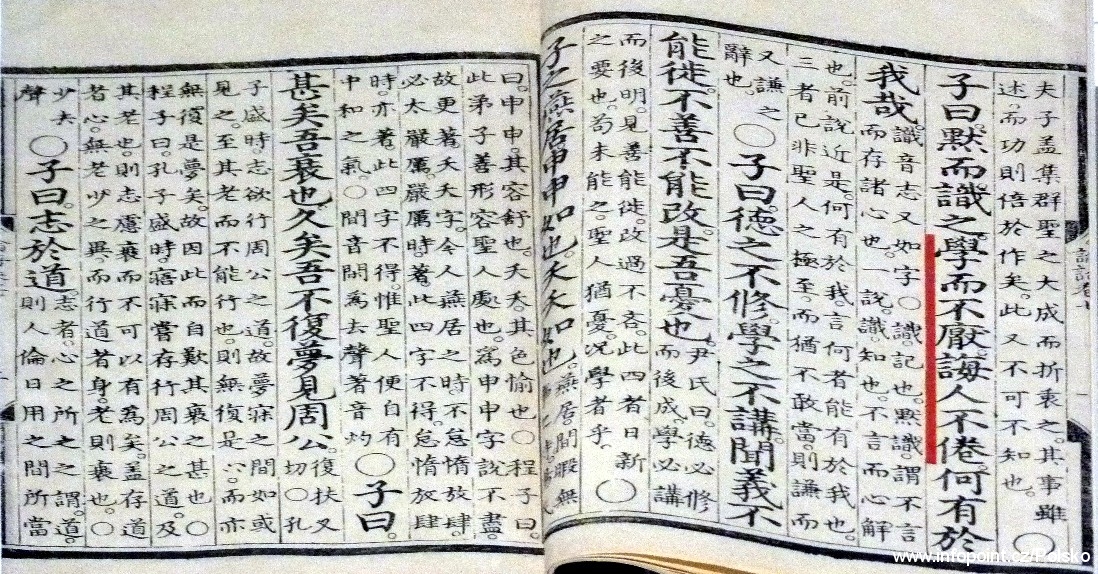 夫子蓋集群聖之大成而折衷之。其事雖
述。而功則倍於作矣。此又不可不知也。
○
子曰默而識之。學而不厭。誨人不倦。何有於
我哉
識音志又如字○識記也。默識謂不言
而存諸心也。一說。識知也。不言而心解
也。前說近是。何有於我言何者能有於我也。
三者已非聖人之極至。而猶不敢當。則謙而
又謙之
辭也。
○子曰。德之不修。學之不講。聞義不
能徙。不善不能改。是吾憂也。
尹氏曰。德必修
而後成。學必講
而後明。見善能徙。改過不吝。此四者日新
之要也。苟未能之。聖人猶憂。況學者乎。
○
子之燕居申申如也。夭夭如也。
燕居。閒暇無
曰。申申。其容舒也。夭夭。其色愉也○程子曰。
此弟子善形容聖人處也。為申申字說不盡。
故更著夭夭字。今人燕居之時。不怠惰放肆。
必太嚴厲。嚴厲時。著此四字不得。怠惰放肆
時。亦著此四字不得。惟聖人便自有
中和之氣○閒音閑為去聲著音灼
○子曰。
甚矣吾衰也久矣吾不復夢見周公。
復扶又
切○孔
子盛時。志欲行周公之道。故夢寐之間如或
見之。至其老而不能行也。則無復是心。而亦
無復是夢矣。故因此而自歎其衰之甚也○
程子曰。孔子盛時。寤寐嘗存行周公之道。及
其老也。則志慮衰而不可以有為矣。蓋存道
者心。無老少之異。而行道者身。老則衰也。○
少去
聲
○子曰。志於道
志者。心之所之之謂。道。
則人倫日用之間所當
www.infopoint.cz/Polsko